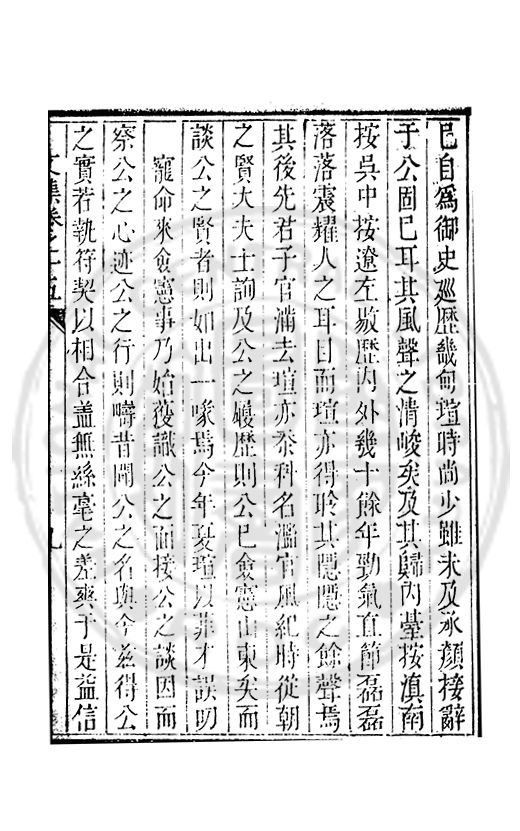 已自爲御史廵歷畿甸瑄時尚少雖未及承顏接辭
于公固已耳其風聲之清峻矣及其歸內臺按滇南
按吳中按遼左敭歷內外幾十餘年勁氣直節磊磊
落落震耀人之耳目而瑄亦得聆其隱隱之餘聲焉
其後先君子官滿去瑄亦忝科名濫官風紀時從朝
之賢大夫士詢及公之履歷則公已僉憲山東矣而
談公之賢者則如出一喙焉今年夏瑄以菲才誤叨
寵命來僉憲事乃始獲識公之面接公之談因而
察公之心迹公之行則疇昔聞公之名與今茲得公
之實若執符契以相合盖無絲毫之差爽于是益信
文集卷之十五
九